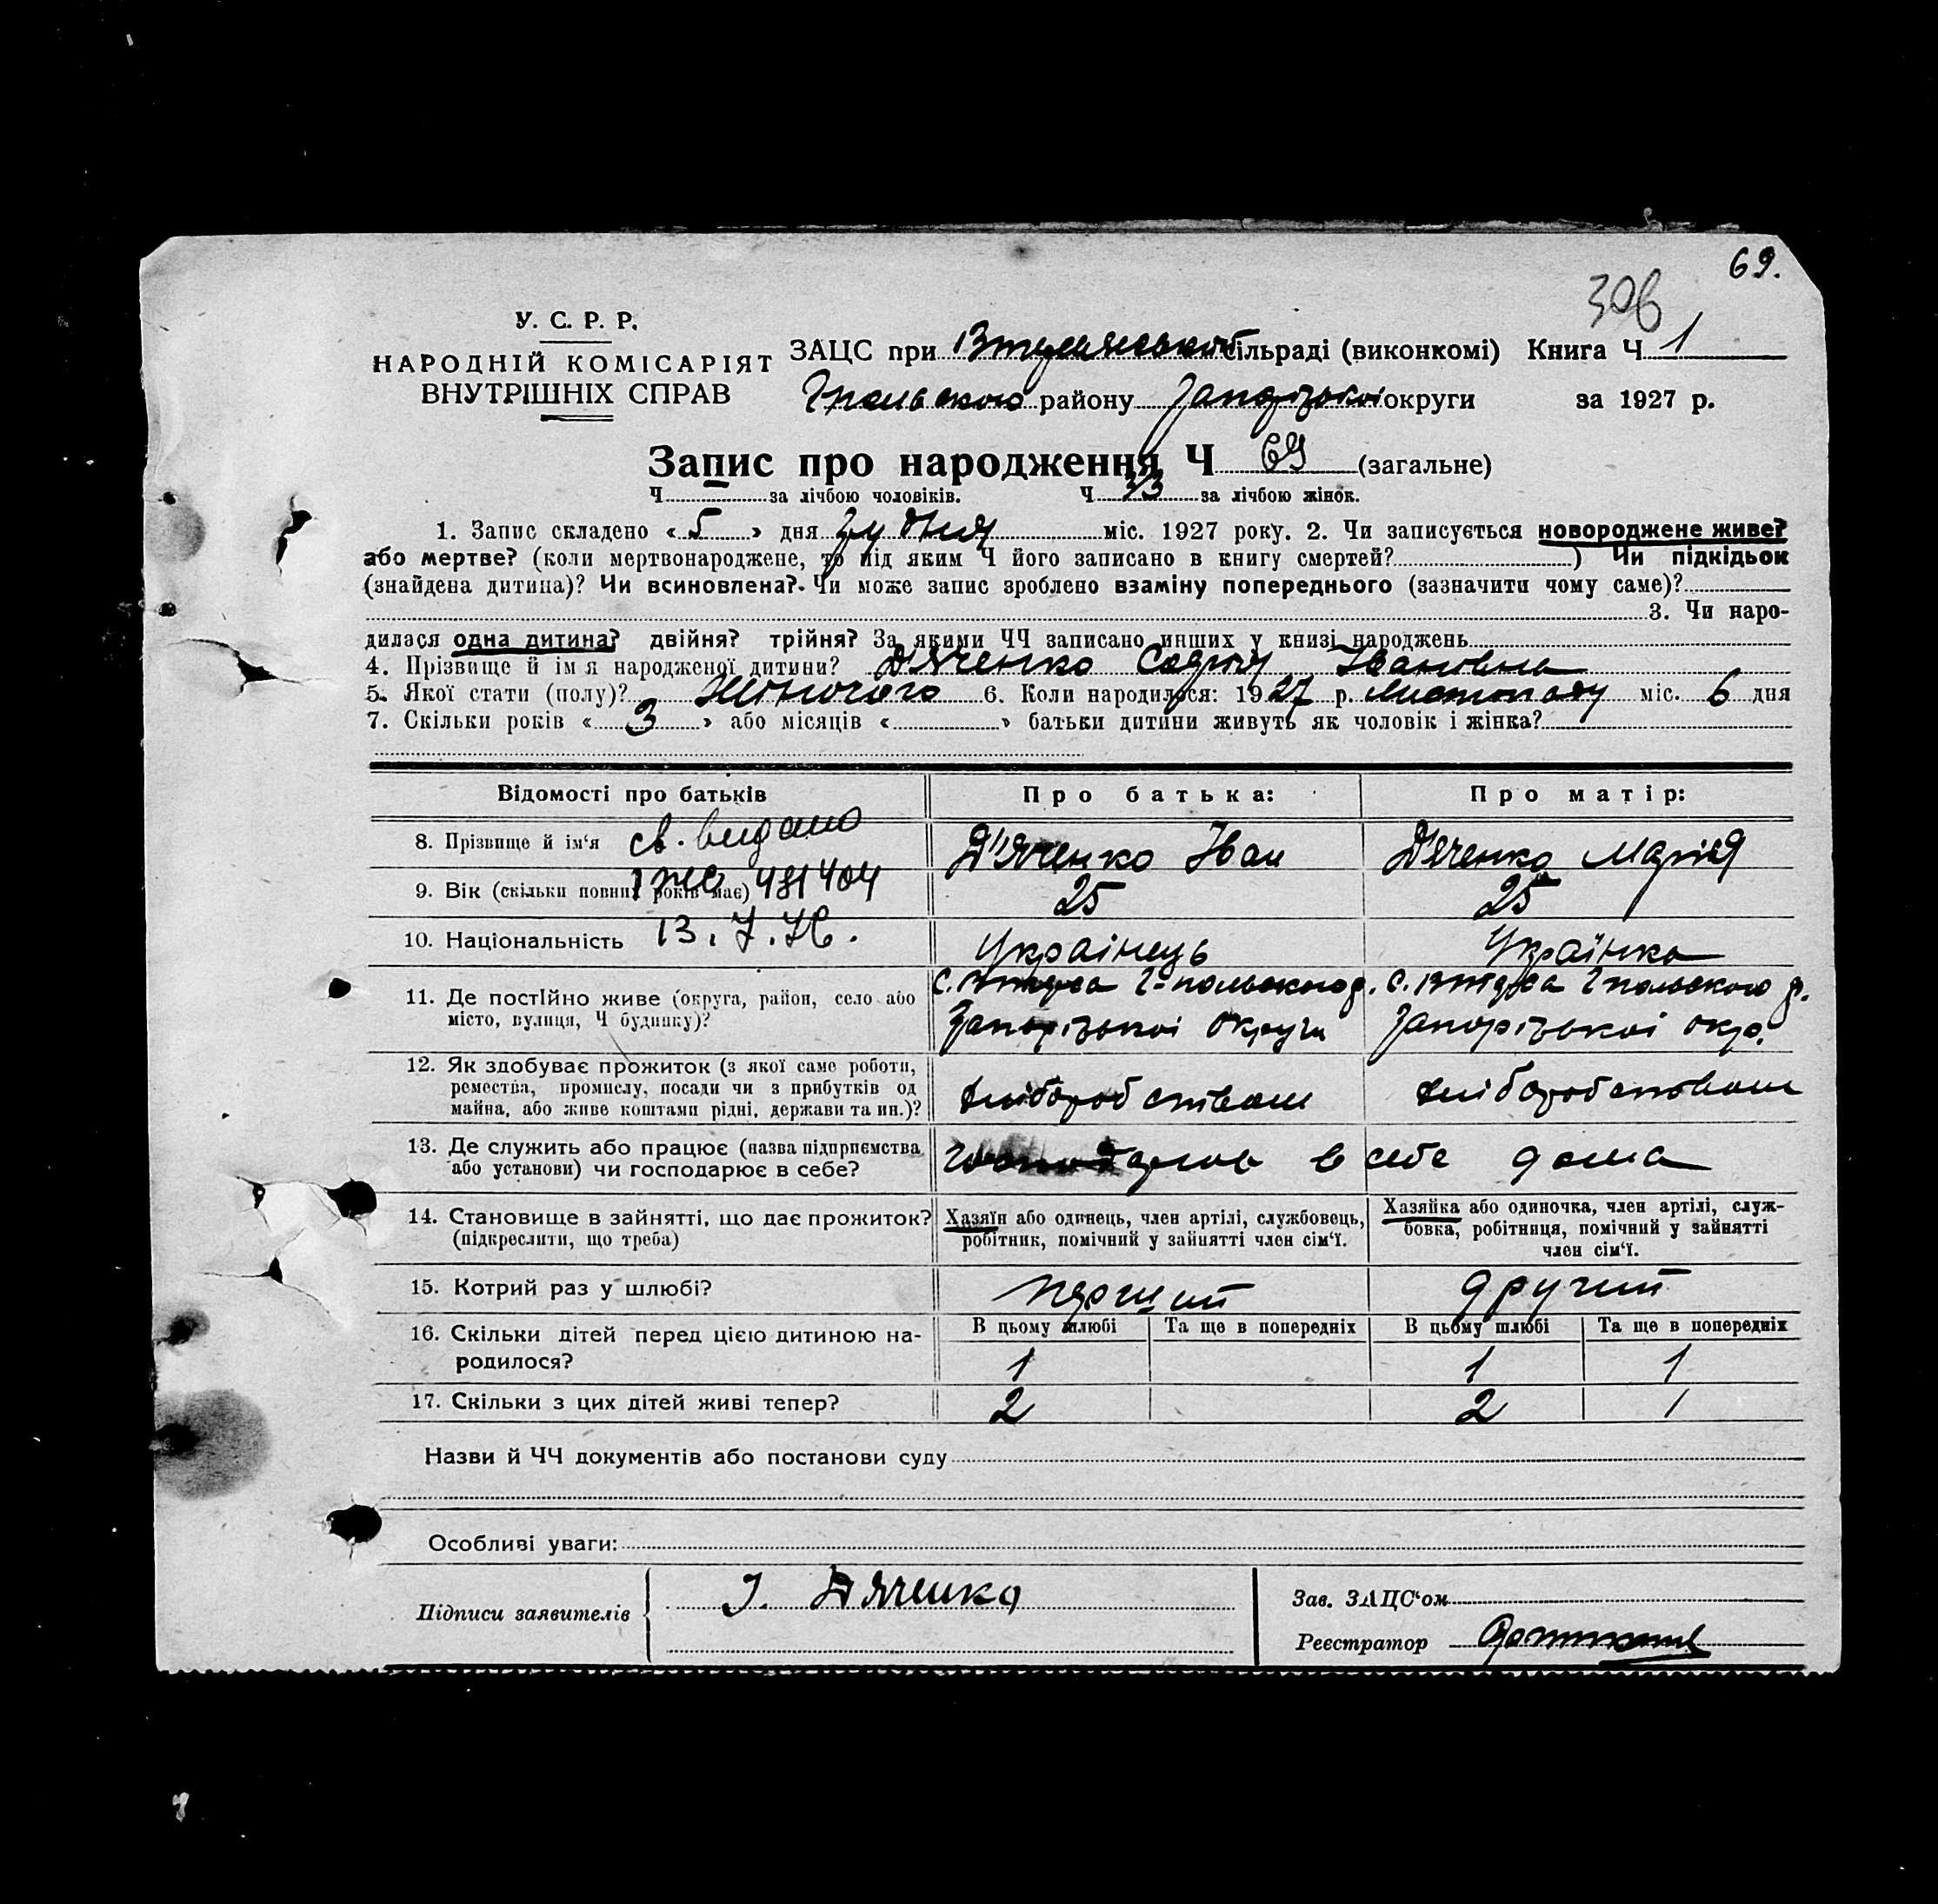 69.
306
У. С. Р. Р.
НАРОДНІЙ КОМІСАРІЯТ
ВНУТРІШНІХ СПРАВ
ЗАЦС при сільраді (виконкомі) Книга Ч 1
району Запорізької округи за 1927 р.
Запис про народження Ч 69 (загальне)
Ч за лічбою чоловіків. Ч 33 за лічбою жінок.
1. Запис складено « 5 » дня грудня міс. 1927 року. 2. Чи записується новороджене живе?
або мертве? (коли мертвонароджене, то під яким Ч його записано в книгу смертей? ) Чи підкідьок
(знайдена дитина)? Чи всиновлена? Чи може запис зроблено взаміну попереднього (зазначити чому саме)?
3. Чи наро-
дилася одна дитина? двійня? трійня? За якими ЧЧ записано инших у книзі народжень
4. Прізвище й ім я народженої дитини? Д'яченко Івановна
5. Якої стати (полу)? Жіночого 6. Коли народилося: 1927 р. листопаду міс. 6 дня
7. Скільки років « 3 » або місяців « » батьки дитини живуть як чоловік і жінка?
Відомості про батьків Про батька: Про матір:
8. Прізвище й ім‘я св. видано Д'яченко Іван Д'яченко Марія
9. Вік (скільки повних років має) 481404 25 25
10. Національність 13. 7. Українець Українка
11. Де постІйно живе (округа, район, село або с. р. с. р.
місто, вулиця, Ч будинку)? Запорізької округи Запорізької окр.
12. Як здобуває прожиток (з якої саме роботи,
ремества, промислу, посади чи з прибутків од хліборобством хліборобством
майна, або живе коштами рідні, держави та ин.)?
13. Де служить або працює (назва підприємства
або установи) чи господарює в себе? в себе дома
14. Становище в зайнятті, що дає прожиток? Хазяїн або одинець, член артілі, службовець, Хазяйка або одиночка, член артілі, служ-
(підкреслити, що треба) робітник, помічний у зайнятті член сім‘ї. бовка, робітниця, помічний у зайнятті
член сім‘ї.
15. Котрий раз у шлюбі? перший другий
16. Скільки дітей перед цією дитиною на- В цьому шлюбі Та ще в попередніх В цьому шлюбі Та ще в попередніх
родилося? 1 1 1
17. Скільки з цих дітей живі тепер? 2 2 1
Назви й ЧЧ документів або постанови суду
Особливі уваги:
Підписи заявителів І. Дяченко
Зав. ЗАЦС‘ом
Реєстратор